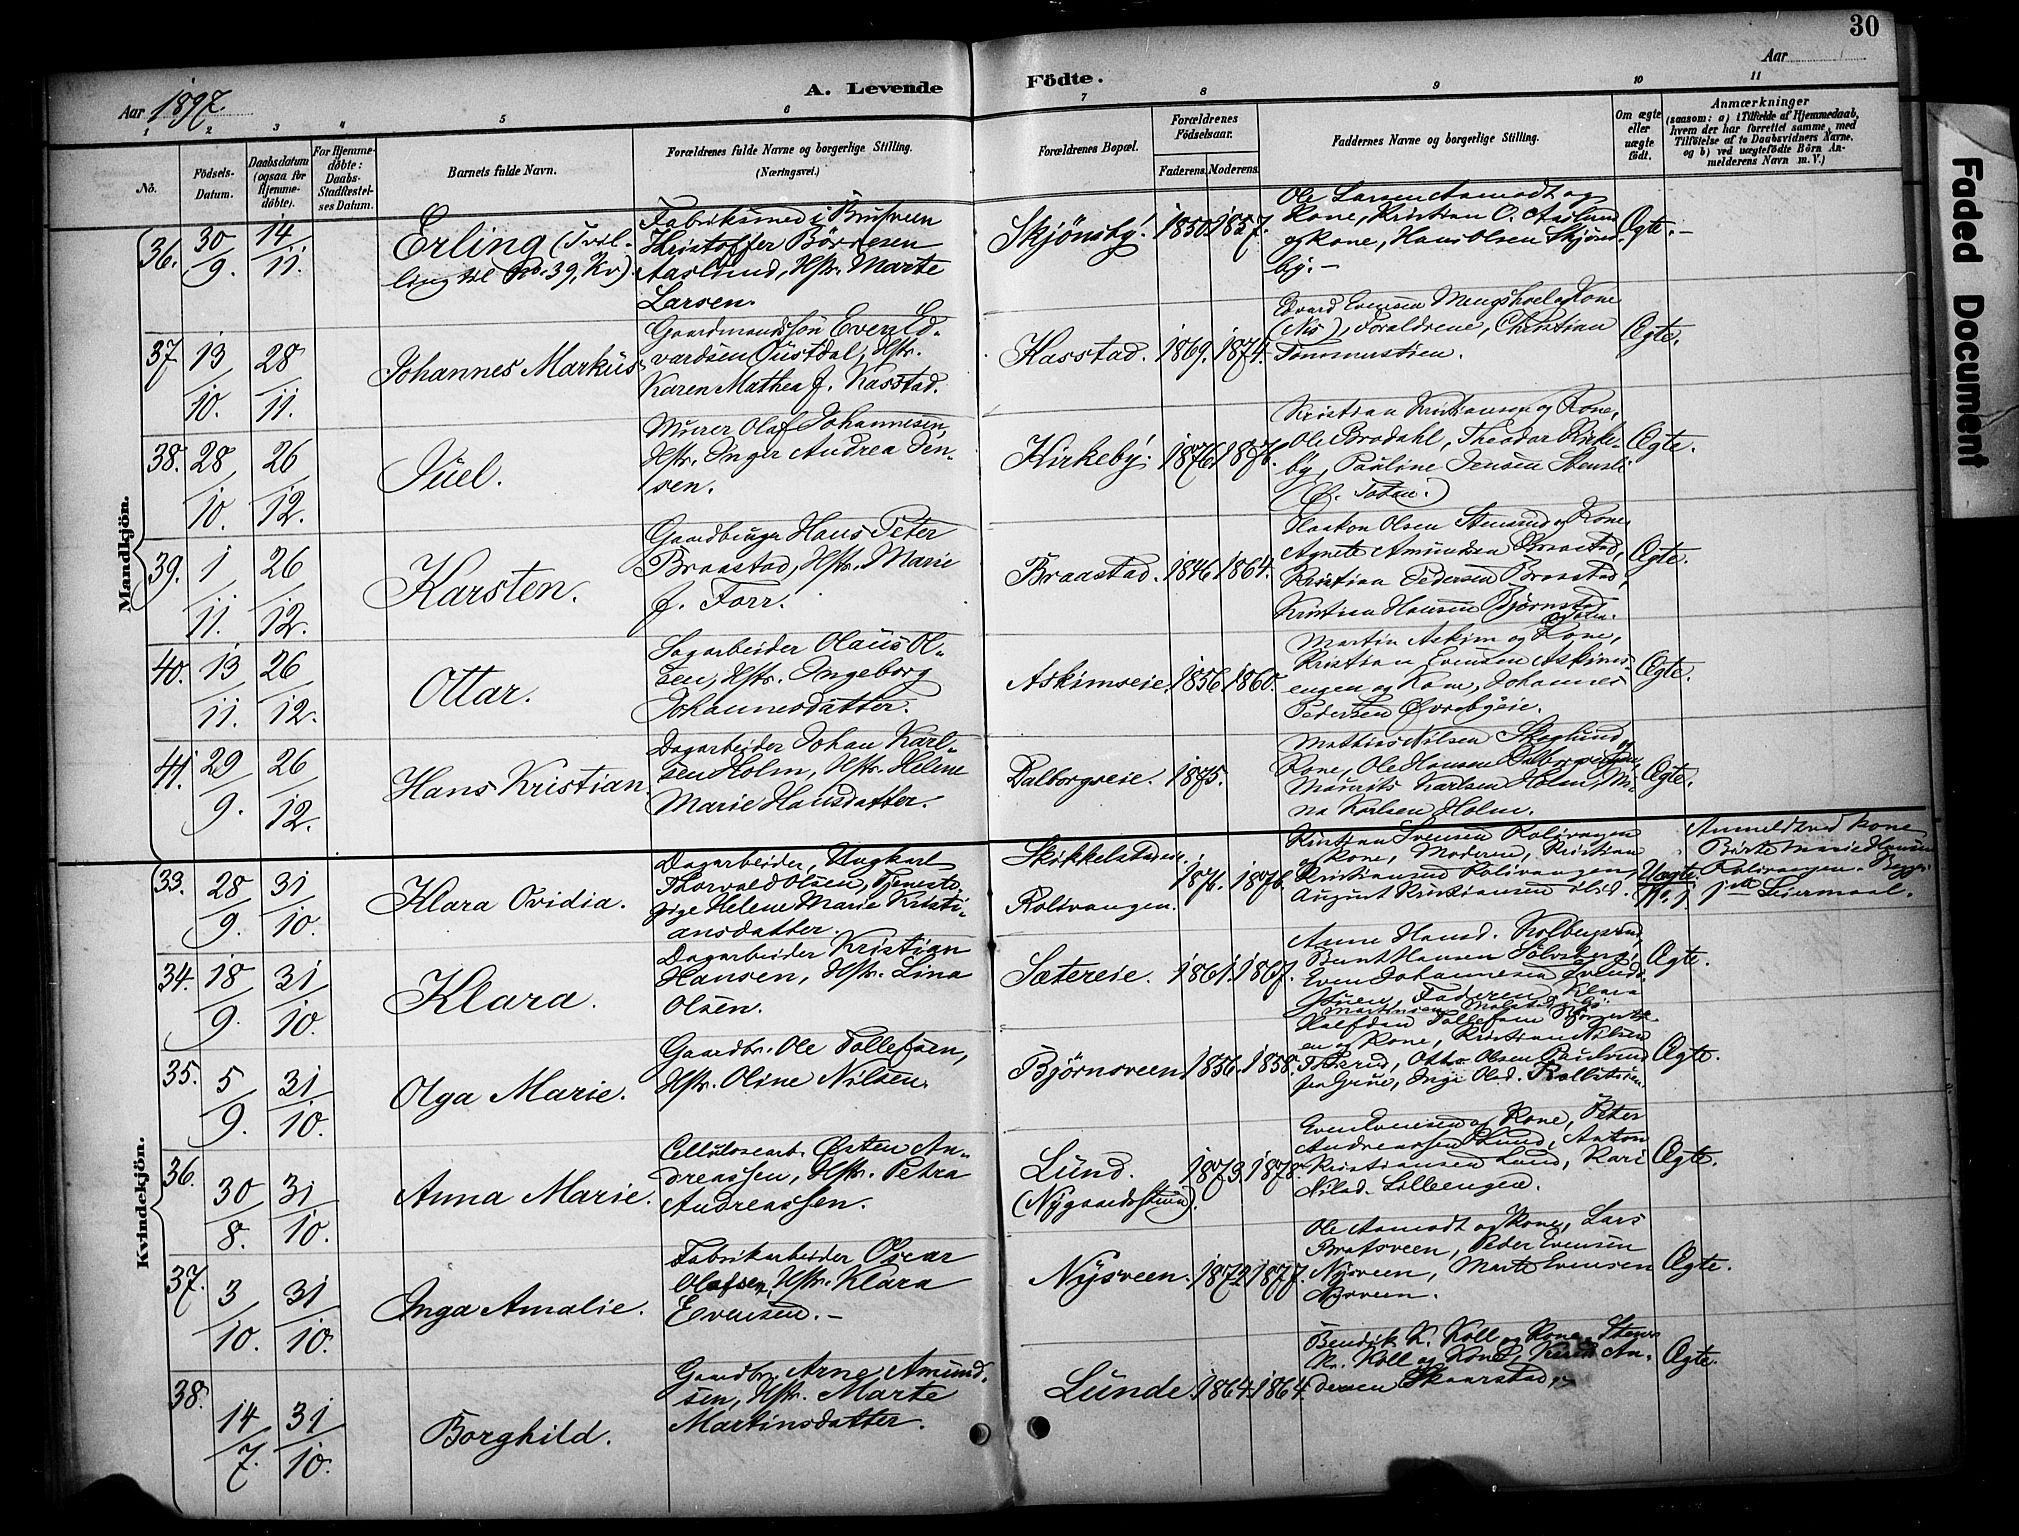 30
Aar 1897.
A. Levende Födte.
Aar
1 2 3 4 5 6 7 8 9 10 11
No.
Födsels-Datum.
Daabsdatum (ogsaa for Hjemme-döbte).
For Hjemme-döbte: Daabs-Stadfæstel-ses Datum.
Barnets fulde Navn.
Forældrenes fulde Navne og borgerlige Stilling. (Næringsvei.)
Forældrenes Bopæl.
Forældrenes Födselsaar.
Faderens. Moderens.
Faddernes Navne og borgerlige Stilling.
Om ægte eller uægte födt.
Anmærkninger
(saasom: a) i Tilfælde af Hjemmedaab, hvem der har forrettet samme, med Tilföielse af to Daabsvidners Navne, og b) ved uægtefödte Börn Anmelderens Navn m. V.)
Faded Document
Mandkjön.
36. 30/9. 14/11.
Erling (Tvil-
ling til No. 39, Kv).
Fabriksmed i
Kristoffer Börresen
Aaslund, Hstr. Marte
Larsen.
Skjönsby. 1850. 1857.
Ole Larsen Aamodt og
Kone, Kristian O. Aaslund
og Kone, Hans Olsen Skjöns-
by.-
Ægte.-
37. 13/10. 28/11.
Johannes Markus
Gaardmandssön Even Ed-
vardsen Hstr.
Karen Mathea f. Kasstad.
Kasstad. 1869. 1874.
Edvard Evensen Mengshoel og Kone
(Næs), Forældrene, Christian
Tommerstien.
Ægte.
38. 28/10. 26/12.
Juel.
Murer Olaf Johannesen,
Hstr. Inger Andrea Jen-
sen.
Kirkeby. 1876. 1876.
Kristian Kristiansen og Kone,
Ole Brodahl, Theodor Kirke-
by, Pauline Jensen Stensli
(Ø. Toten.)
Ægte.
39. 1/11. 26/12.
Karsten.
Gaardbruger Hans Peter
Braastad, Hstr. Marie
f. Forr.
Braastad. 1846. 1864.
Haakon Olsen Stensrud og Kone,
Agnete Amundsen Braastad,
Kristian Pedersen Braastad,
Kristian Hansen Björnstad
Ægte.
40. 13/11. 26/12.
Ottar.
Sagarbeider Olaus Ol-
sen, Hstr. Ingeborg
Johannesdatter.
Askimseie. 1856. 1860.
Martin Askim og Kone,
Kristian Evensen Askims-
engen og Kone, Johannes
Pedersen Øvrebyeie.
Ægte.
41. 29/9. 26/12.
Hans Kristian.
Dagarbeider Johan Karl-
sen Holm, Hstr. Helene
Marie Hansdatter.
Dalborgseie. 1875.
Mathias Nilsen Skoglund og
Kone, Ole Hansen
Maurits Karlsen Holm, Mi-
na Karlsen Holm.
Ægte.
Kvindekjön.
33. 28/9. 31/10.
Klara Ovidia.
Dagarbeider, Ungkarl
Thorvald Olsen, Tjeneste-
pige Helene Marie Kristi-
ansdatter.
Skikkelstadeie.
Rolivangen.
1876. 1876.
Kristian Svensen Rolivangen
og Kone, Moderen, Kristian
Kristiansen Rolivangen,
August Kristiansen ibid.
Uægte.
Anmeldt ved Kone
Birte Marie Hansen
Rolivangen. Begges
1ste Leiermaal.
34. 18/9. 31/10.
Klara.
Dagarbeider Kristian
Hansen, Hstr. Lina
Olsen.
Sætereie. 1861. 1867.
Anne Hansd. Kolbergsrud,
Bernt Hansen Sölvsberg,
Even Johannesen
Faderen, Klara
Ægte.
35. 5/9. 31/10.
Olga Marie.
Gaardbr. Ole Tollefsen,
Hstr. Oline Nilsen.
Björnsveen. 1856. 1858.
Halfdan Tollefsen
og Kone, Kristian Nilsen
Otto Olsen Paulsrud
Ægte.
36. 30/8. 31/10.
Anna Marie.
Cellulosearb. Østen An-
dreassen, Hstr. Petra
Andreassen.
Lund.
(Nygaardsstuen).
1873. 1878.
Even Evensen og Kone, Peter
Andreassen Lund, Anton
Kristiansen Lund, Kari
Nilsd. Lilleengen.
Ægte.
37. 3/10. 31/10.
Inga Amalie.
Fabrikarbeider Oscar
Olafsen, Hstr. Klara
Evensen.-
Nysveen. 1872. 1877.
Ole Aamodt og Kone, Lars
Bratsveen, Peder Evensen
Nysveen, Marte Evensen
Nysveen.
Ægte.
38. 14/7. 31/10.
Borghild.
Gaardbr. Arne Amund-
sen, Hstr. Marte
Martinsdatter.
Lunde. 1864. 1864.
Bendik K. Koll og Kone,
K. Koll og Kone, Knud An-
dersen Skaarstad.
Ægte.